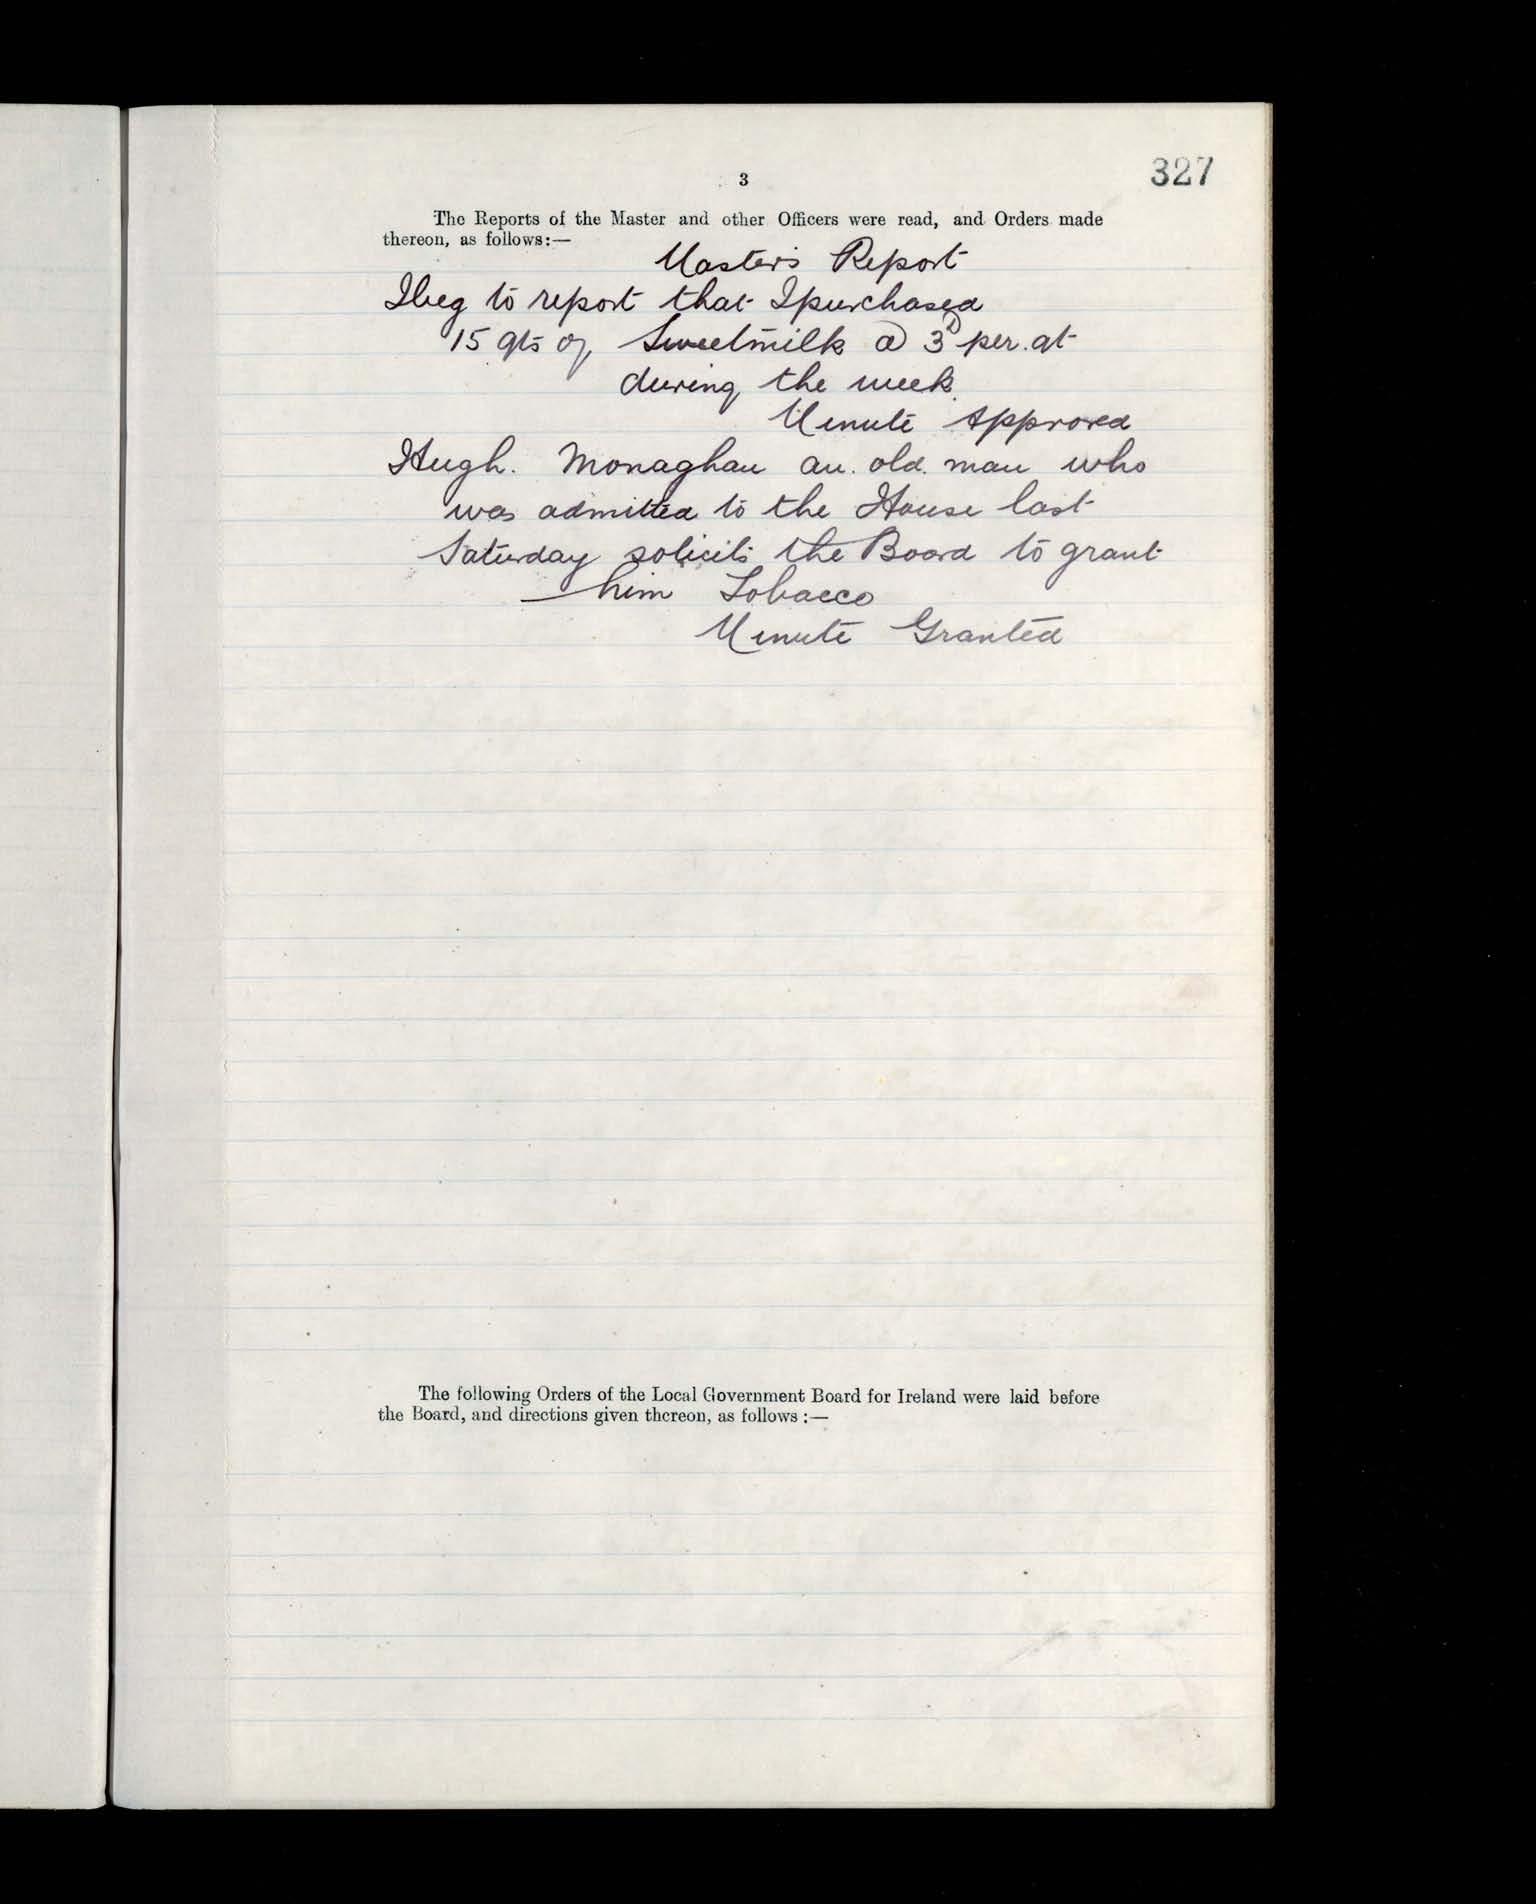 327
3
The Reports of the Master and other Officers were read, and Orders made
thereon, as follows:—
Master's Report
I beg to report that I purchased
15 qts of Sweetmilk @ 3d per. qt
during the week.
Minute Approved
Hugh. Monaghan an. old. man who
was admitted to the House last
Saturday solicits the Board to grant
him Tobacco
Minute Granted
The following Orders of the Local Government Board for Ireland were laid before
the Board, and directions given thereon, as follows :—